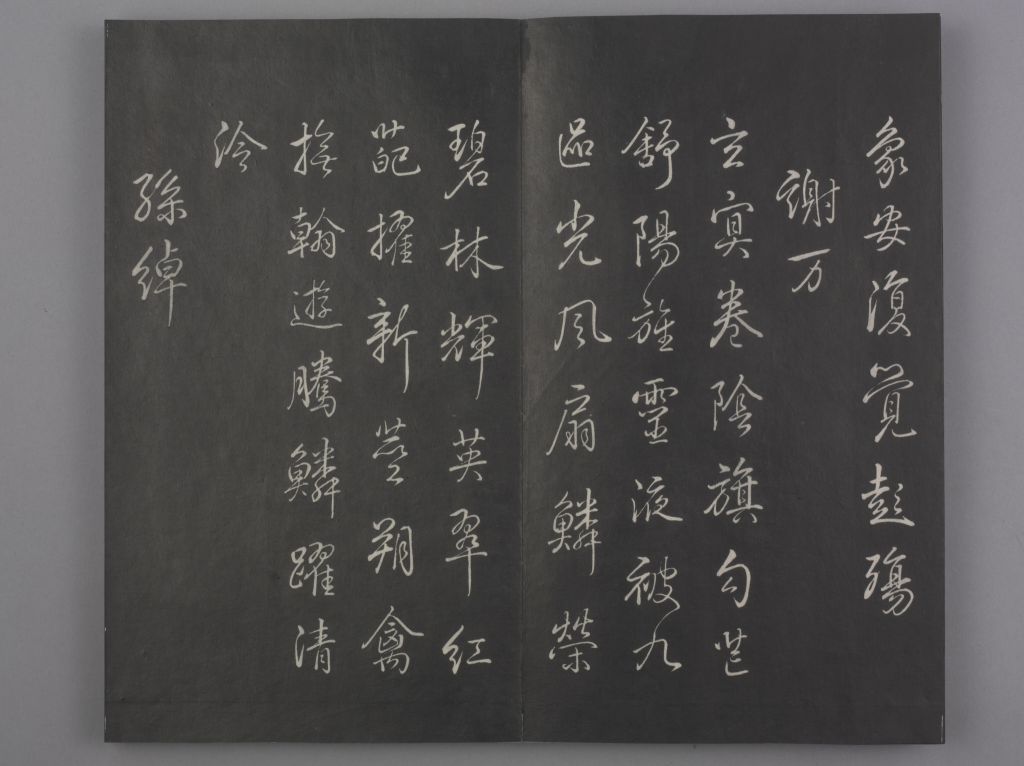 象安復覺彭殤
謝万
玄冥卷陰旗勾芒
舒陽旌靈液被九
區光風扇鱗榮
碧林輝英翠紅
葩擢新莖翔禽
撫翰遊騰鱗躍清
泠
孫綽